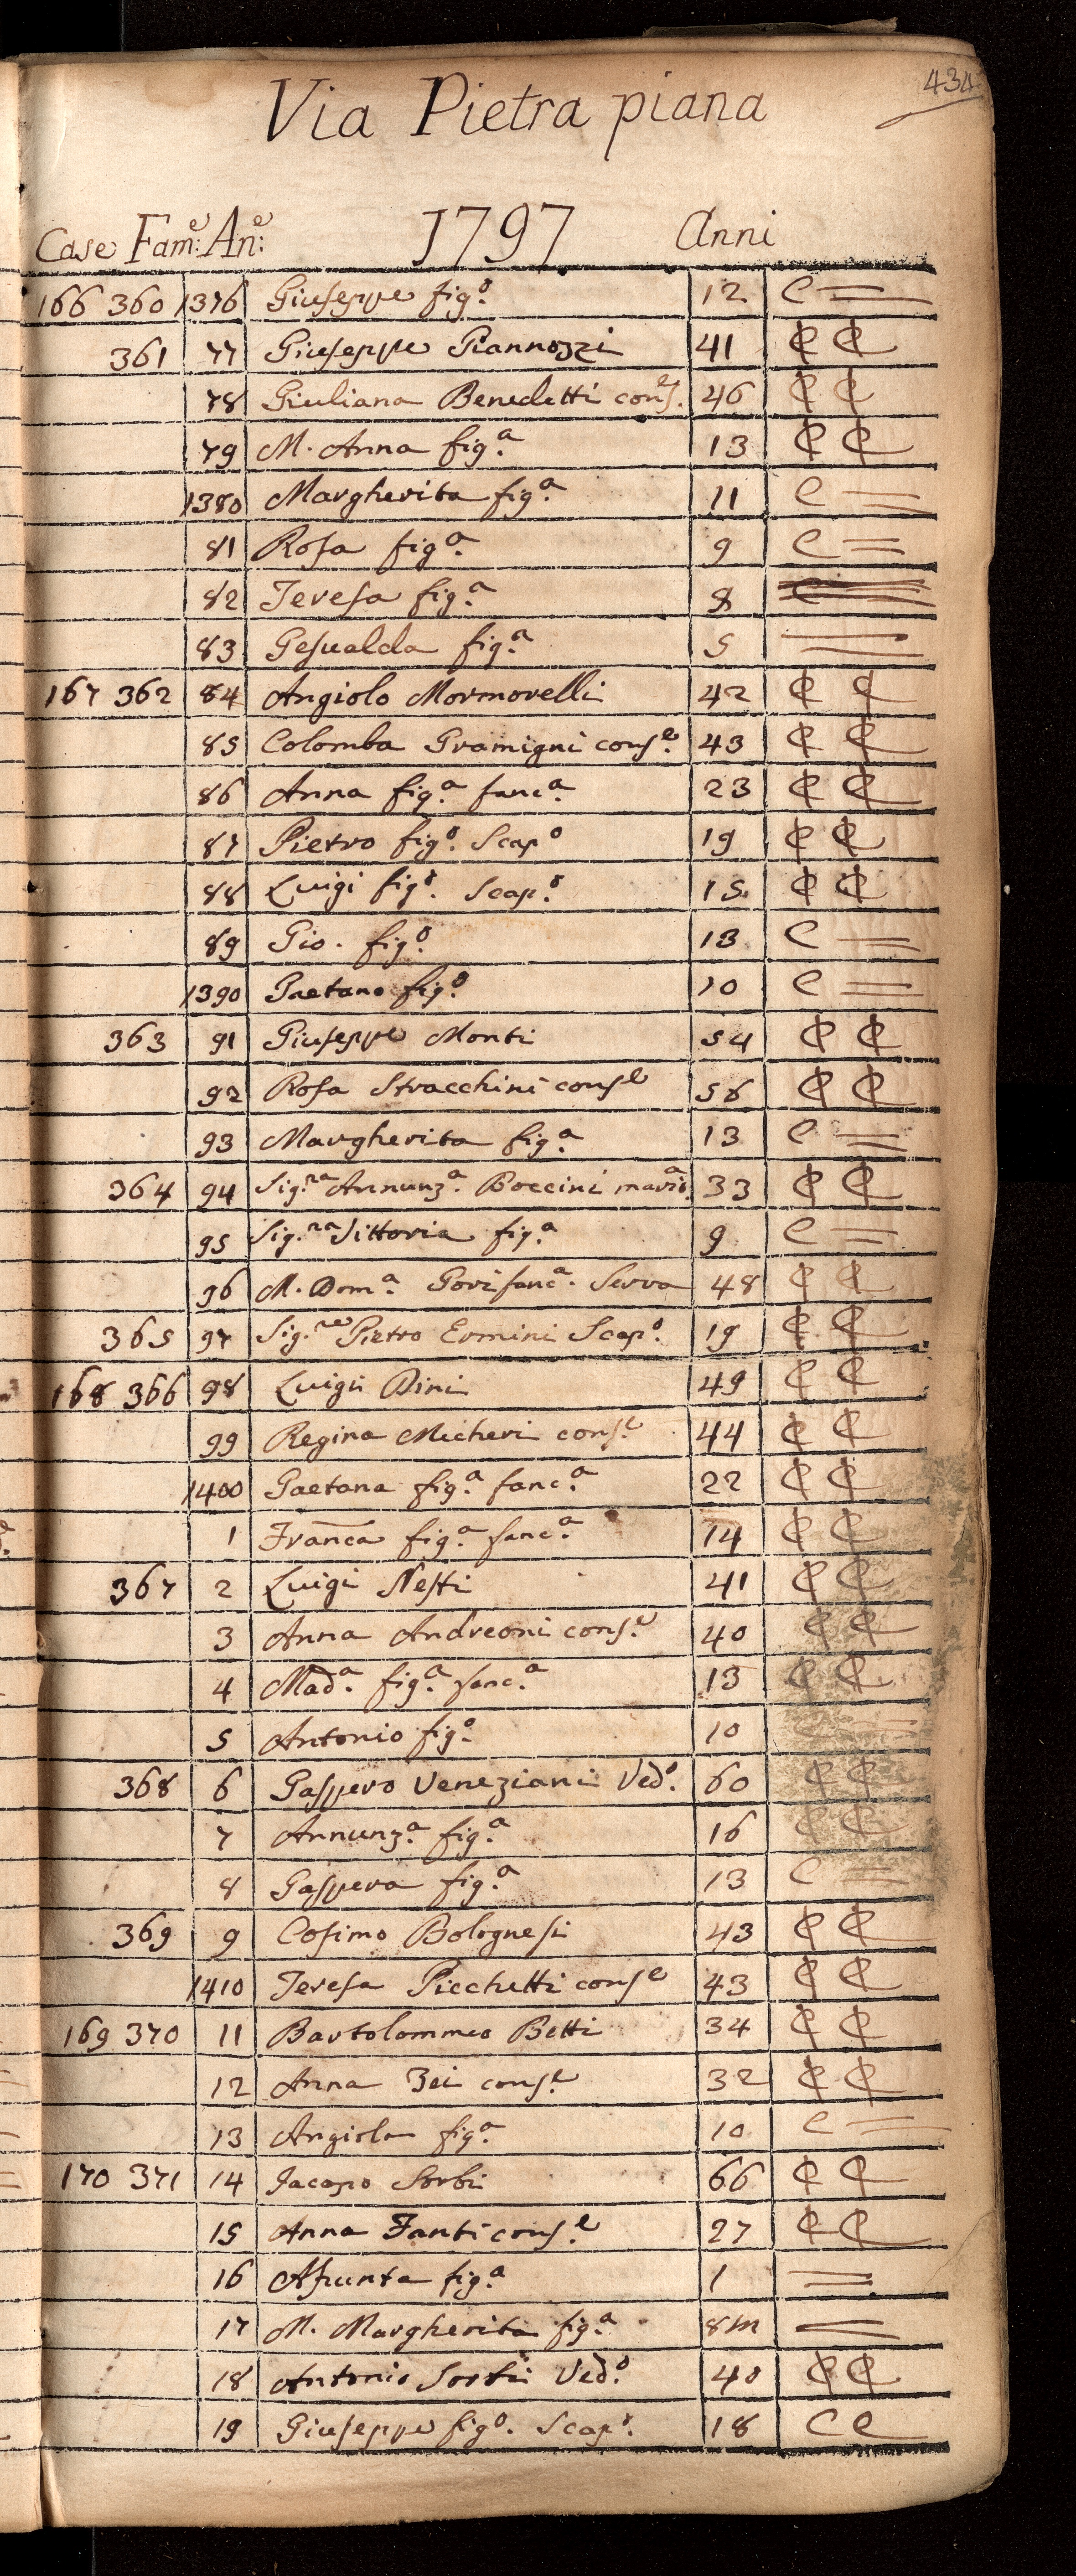 434
Via Pietra piana
Case Fam:e An:e 1797 Anni
166 360 1376 Giuseppe fig.o 12 C =
361 77 Giuseppe Giannozzi 41 C C
78 Giuliana Benedetti cons.e 46 C C
79 M. Anna fig.a 13 C C
1380 Margherita fig.a 11 C =
81 Rosa fig.a 9 C =
82 Teresa fig.a 8
83 Gesualda fig.a 5 =
167 362 84 Angiolo Mormorelli 42 C C
85 Colomba Gramigni cons.e 43 C C
86 Anna fig.a fanc.a 23 C C
87 Pietro fig.o Scap.o 19 C C
88 Luigi fig.o Scap.o 15 C C
89 Gio. fig.o 13 C =
1390 Gaetano fig.o 10 C =
363 91 Giuseppe Monti 54 C C
92 Rosa Stracchini cons.e 56 C C
93 Margherita fig.a 13 C =
364 94 Sig.ra Annunz.a Boccini 33 C C
95 Sig.ra Vittoria fig.a 9 C =
96 M. Dom.a Gori fanc.a Serva 48 C C
365 97 Sig.re Pietro Ermini Scap.o 19 C C
168 366 98 Luigi Dini 49 C C
99 Regina Micheri cons.e 44 C C
1400 Gaetana fig.a fanc.a 22 C C
1 Franca fig.a fanc.a 14 C C
367 2 Luigi Nesti 41 C C
3 Anna Andreoni cons.e 40 C C
4 Mad.a fig.a fanc.a 13 C C
5 Antonio fig.o 10
368 6 Gaspero Veneziani Ved.o 60 C C
7 Annunz.a fig.a 16 C C
8 Gaspera fig.a 13 C =
369 9 Cosimo Bolognesi 43 C C
1410 Teresa Picchetti cons.e 43 C C
169 370 11 Bartolommeo Betti 34 C C
12 Anna Zei cons.e 32 C C
13 Angiola fig.a 10 C =
170 371 14 Jacopo Sorbi 66 C C
15 Anna Fanti cons.e 27 C C
16 Assunta fig.a 1 =
17 M. Margherita fig.a 8m =
18 Antonio Sorbi Ved.o 40 C C
19 Giuseppe fig.o Scap.o 18 C C